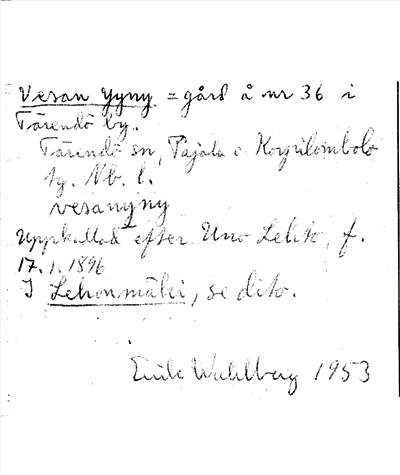 Vesan yyny = gård å nr 36 i
Tärendö by.
Tärendö sn, Pajala o Korpilombolo
tg. Nb. l.
vesanyny
Uppkallad efter Uno Lehto, f.
17.1.1896
I Lehonmäki, se dito.
Erik Wahlberg 1953